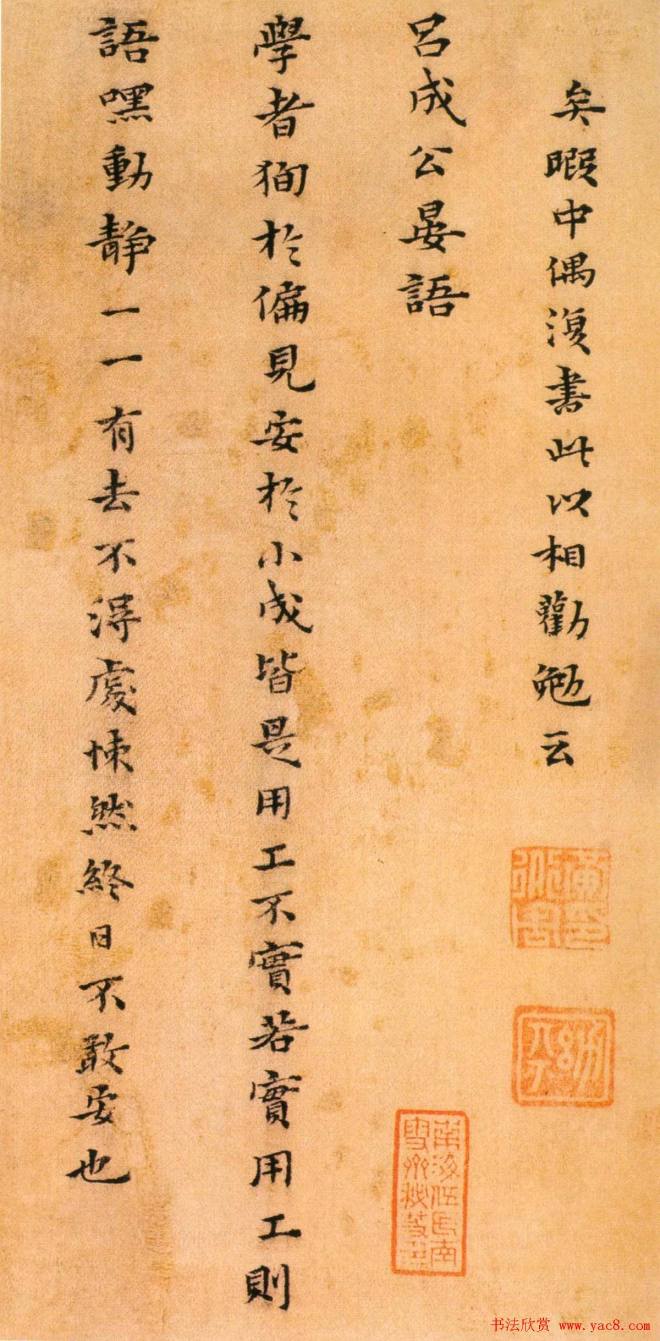 矣暇中偶復書此以相勸勉云
呂成公晏語
學者狥於偏見安於小成皆是用工不實若實用工則
語嘿動靜一一有去不得處悚然終日不敢安也
南海伍氏南雪齋秘笈印
书法欣赏 www.yac8.com